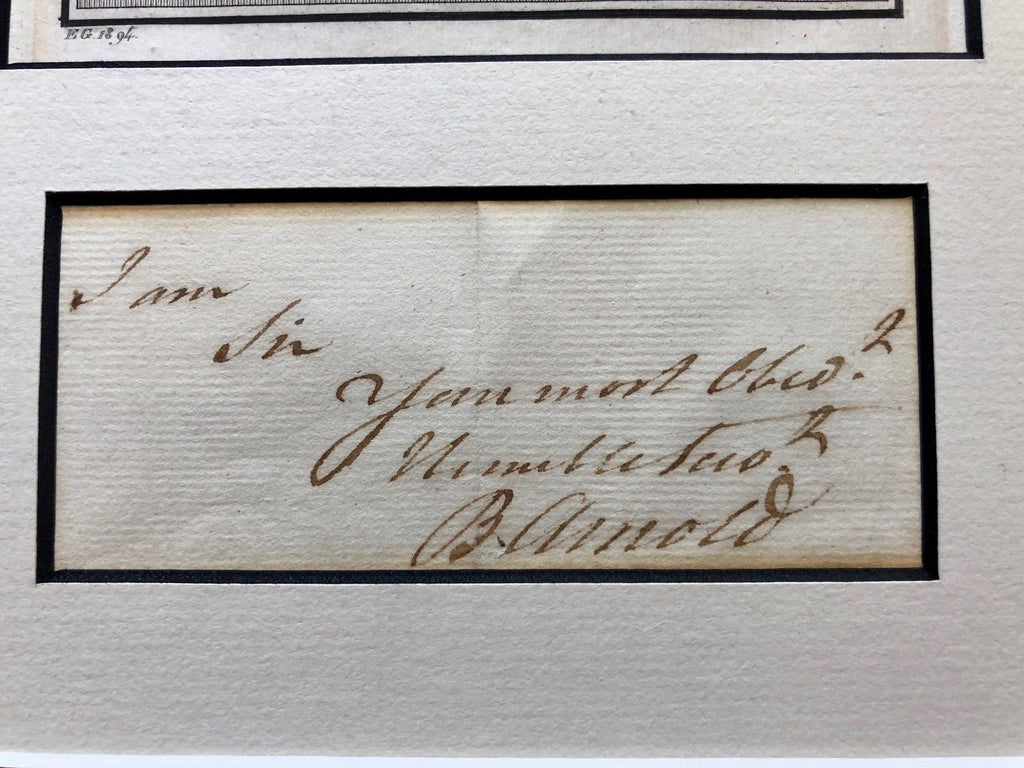 E G. 1894.
I am
Sir
Your most Obed.t
Humble Serv.t
B. Arnold